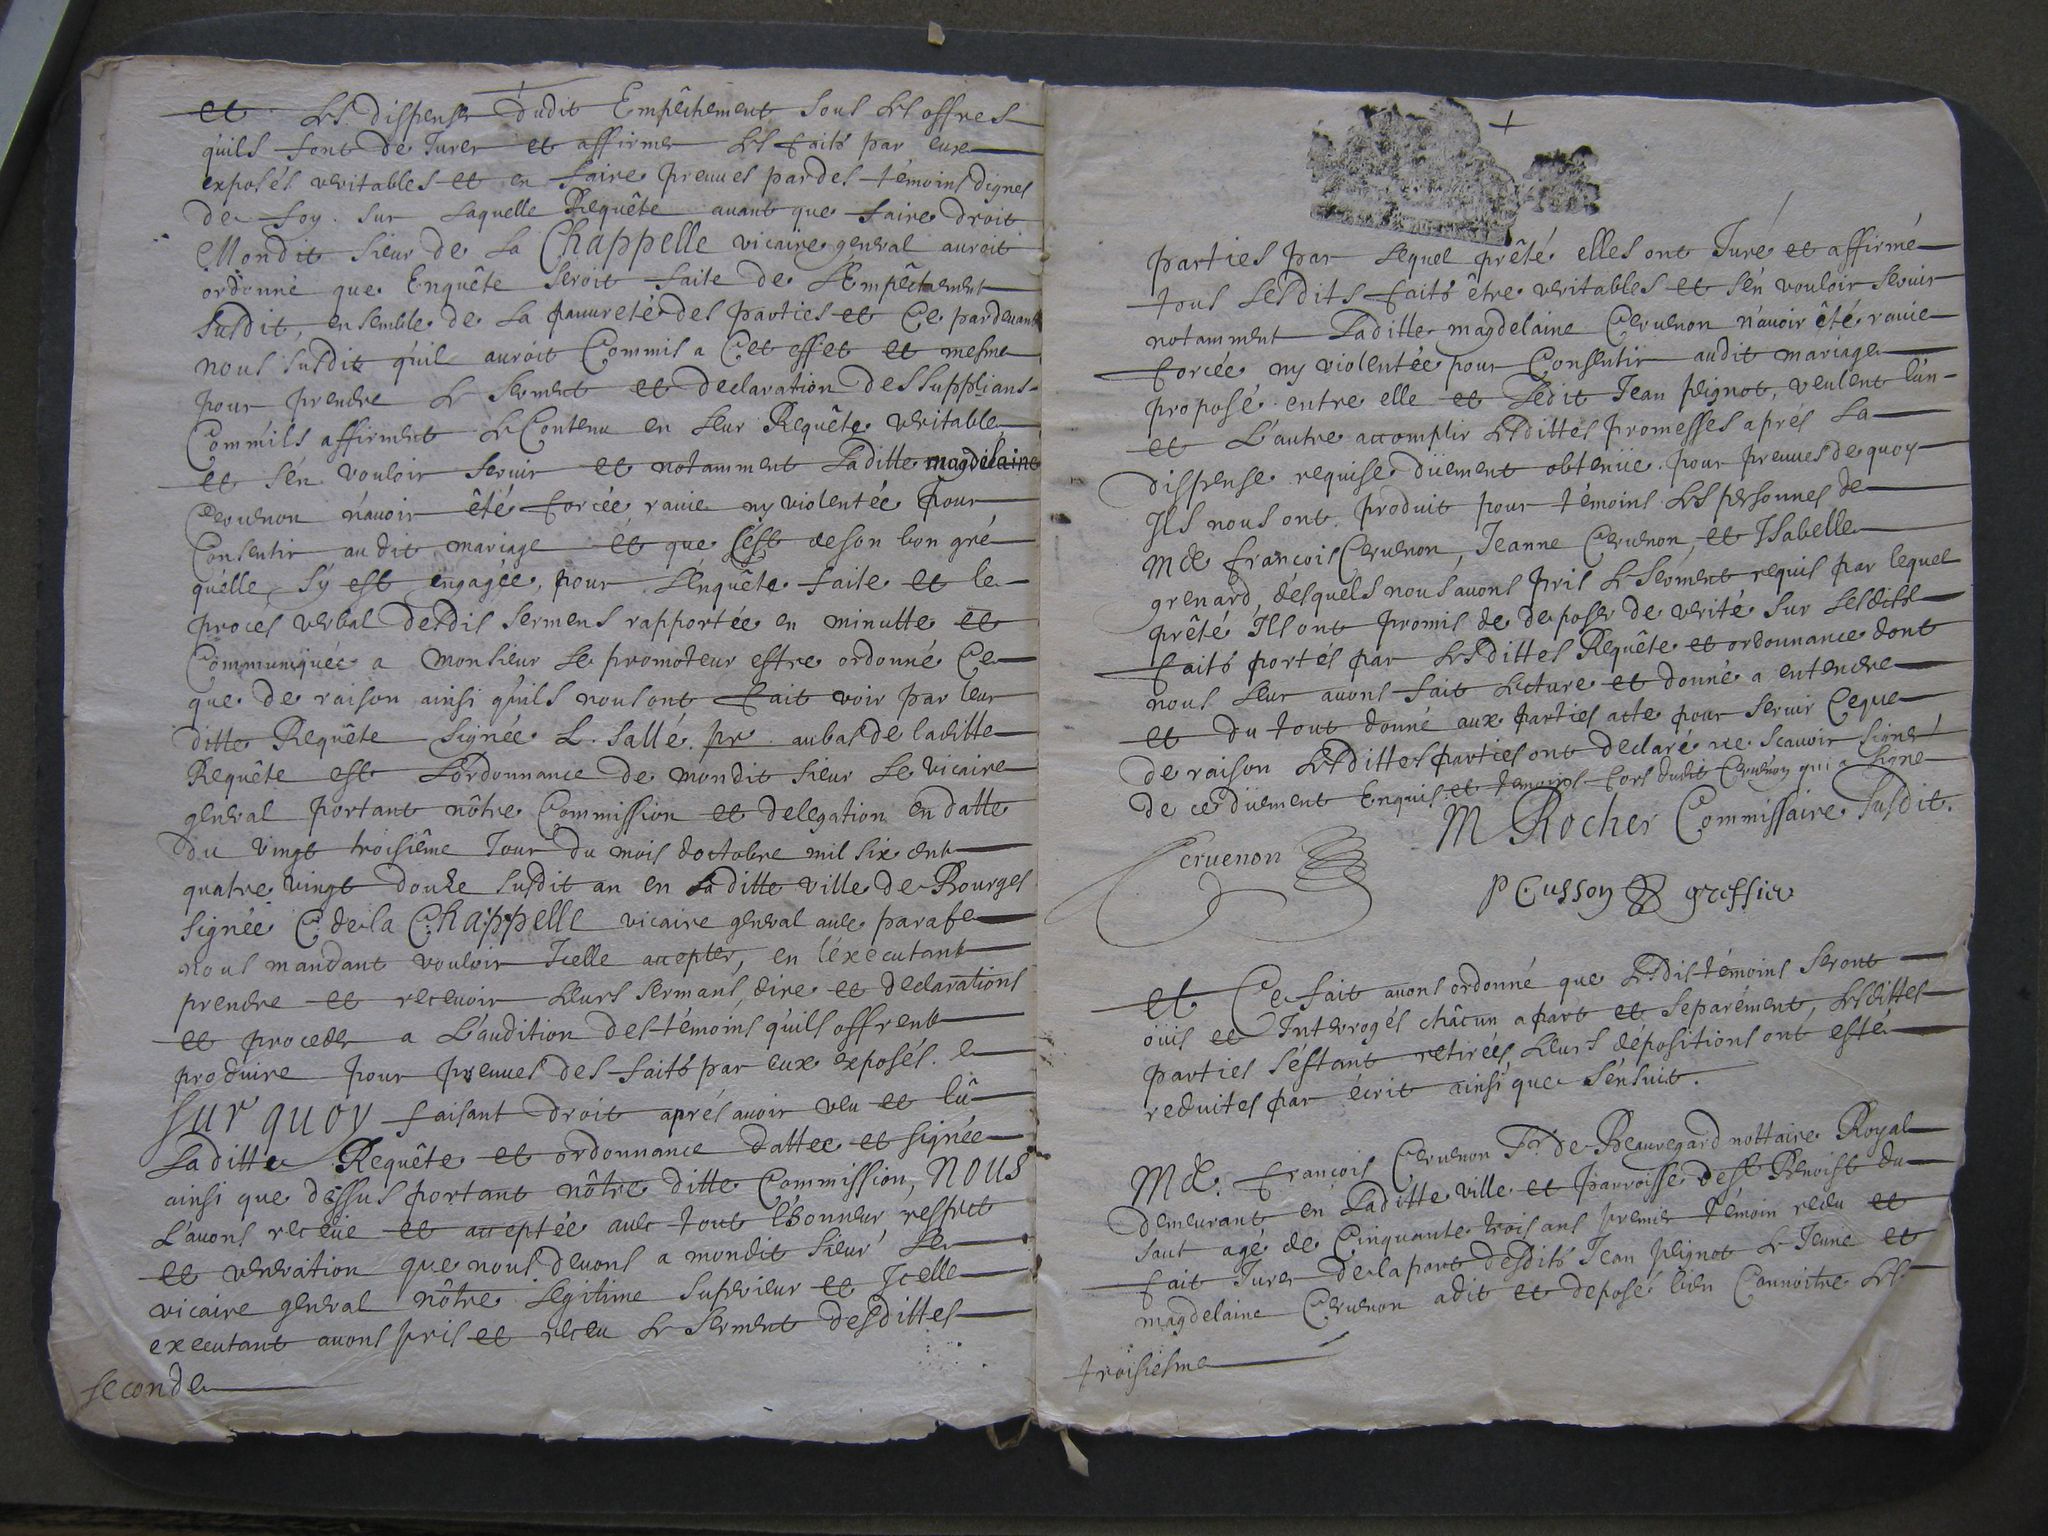 et Les dispenser dudit Empêchement sous Les offres
quils font de Jurer et affirmer Les faits par eux
exposés veritables et en faire preuves par des témoins dignes
de foy. sur Laquelle Requête auant que faire droit
Mondit sieur de La Chappelle vicaire general auroit
ordonné que Enquête seroit faite de L'Empêchement
susdit, ensemble de La pauureté des parties et Ce pardeuant
nous susdit qu'il auroit Commis a Cet effet et mesme
pour prendre Le serment et declaration des supplians
Comm'ils affirment Le Contenu en Leur Requête veritable
et s'en vouloir seruir et notamment Laditte magdelaine
Ceruenon n'auoir êté forcée rauie ny violentée pour
Consentir audit mariage et que C'est de son bon gré
quelle s'y est engagée, pour L'enquête faite et le
proces verbal desdis sermens rapportée en minutte et
Communiquée a Monsieur Le promoteur estre ordonné Ce
que de raison ainsi qu'ils nous ont fait voir par leur
ditte Requête signée L. Sallé. pr. au bas de laditte
Requête est L'ordonnance de mondit sieur Le vicaire
general portant nôtre Commission et delegation en datte
du vingt troisiême Jour du mois doctobre mil six cent
quatre vingt douze susdit an en Laditte ville de Bourges
signée C. de la Chappelle vicaire general auec parafe
nous mandant vouloir Icelle accepter, en l'éxecutant
prendre et receuoir Leurs sermans, dire et declarations
et proceder a L'audition des témoins qu'ils offrent
produire pour preuues des faits par eux exposés.
Sur quoy faisant droit aprés auoir veu et lû
Laditte Requête et ordonnance dattée et signée
ainsi que dessus portant nôtre ditte Commission, nous
L'auons receüe et acceptée auec tout l'honneur, respect
et veneration que nous deuons a mondit sieur Le
vicaire general nôtre Legitime superieur et Icelle
executant auons pris et receu Le serment desdittes
seconde
parties par Lequel prêté elles ont Juré et affirmé
tous Lesdits faits être veritables et s'en vouloir seruir
notamment Laditte magdelaine Ceruenon n'auoir êté rauie
forcée ny violentée pour Consentir audit mariage
proposé entre elle et Ledit Jean peignot, veulent l'un
et L'autre accomplir Lesdittes promesses apres La
dispense requise düement obtenüe. pour preuues de quoy
Ils nous ont produit pour témoins Les personnes de
Me françois Ceruenon, Jeanne Ceruenon, et Isabelle
grenard, desquels nous auons pris Le serment requis par lequel
prêté Ils ont promis de deposer de verité sur Lesdits
faits portés par Lesdittes Requête et ordonnance dont
nous Leur auons fait Lecture et donné a entendre
et du tout donné aux parties acte pour seruir Ce que
de raison Lesdittes parties ont declaré ne scauoir signer
de ce düement Enquis et temoins fors dudit Ceruenon qui a signé
M Rocher Commissaire susdit.
Ceruenon
P Cusson greffier
et Ce fait auons ordonné que Lesdis témoins seront
oüis et Interrogés châcun a part et separément, Lesdittes
parties s'éstant retirées, Leurs dépositions ont esté
reduites par écrit ainsi que s'ensuit.
Me. françois Ceruenon Sr. de Beauregard nottaire Royal
demeurant en Laditte ville et parroisse de st Benoist du
saut agé de Cinquante trois ans premier témoin receu et
fait Jurer de la part desdits Jean peignot Le Jeune et
magdelaine Ceruenon a dit et deposé bien Connoitre Les
troisiesme